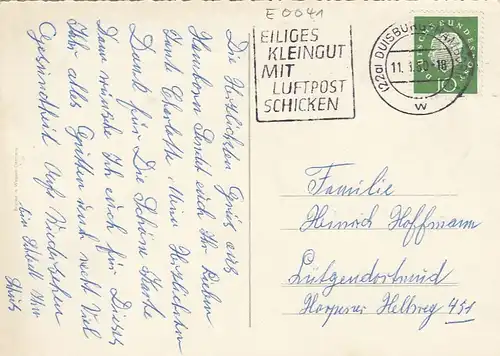 E 0041
EILIGES
KLEINGUT
MIT
LUFTPOST
SCHICKEN
(22a) DUISBURG
11. 1. 60 - 18
w
DEUTSCHE BUNDESPOST
10
Die Herzlichsten Grüße aus
Hamborn Sendet euch Ihr lieben
Tante Charlotte. Meine Herzlichsten
Dank für Die Schöne Karte
Dann wünsche Ich euch für Dieses
Jahr alles Guten und recht Viel
Gesundheit Aufs Wiedersehen
Familie
Heinrich Hoffmann
Lütgendortmund
Harpener Hellweg 451